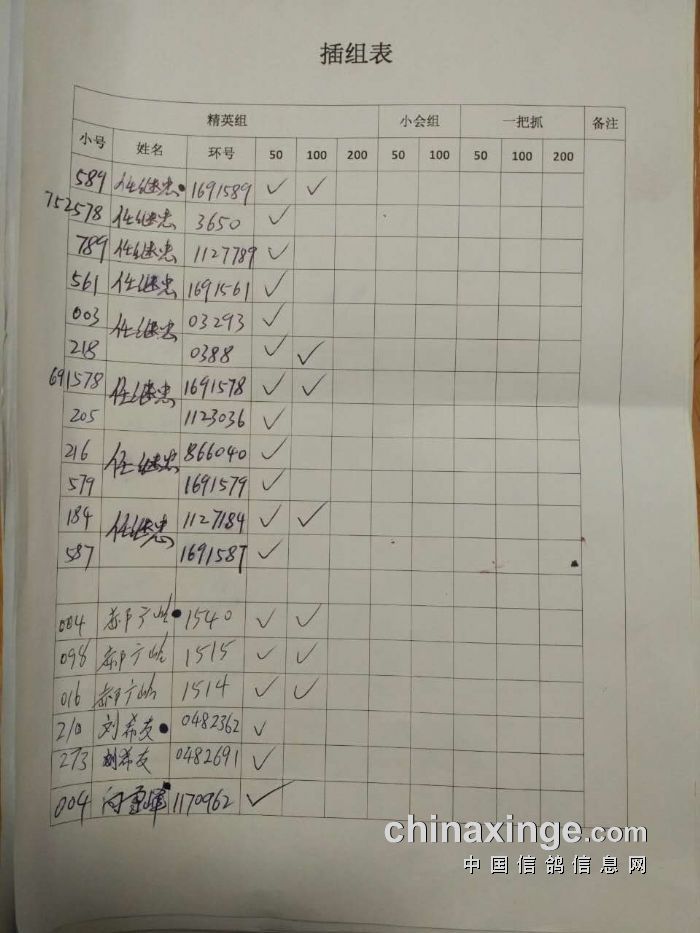 插组表
精英组 小会组 一把抓 备注
小号 姓名 环号 50 100 200 50 100 50 100 200
589 任继忠 1691589 ✓ ✓
752578 任继忠 3650 ✓
789 任继忠 1127789 ✓
561 任继忠 1691561 ✓
003 任继忠 03293 ✓
218 0388 ✓ ✓
691578 任继忠 1691578 ✓ ✓
205 1123036 ✓
216 任继忠 866040 ✓
579 1691579 ✓
184 任继忠 1127184 ✓ ✓
587 1691587 ✓
004 1540 ✓ ✓
098 1515 ✓ ✓
016 1514 ✓ ✓
210 刘希友 0482362 ✓
273 刘希友 0482691 ✓
004 1170962 ✓
chinaxinge.com
中国信鸽信息网